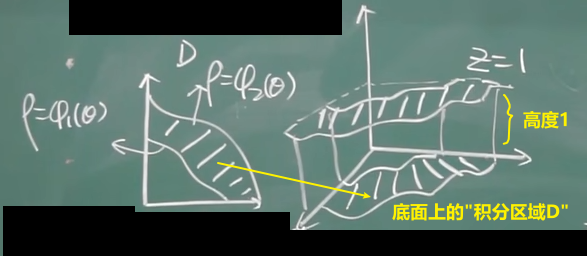 D
ρ=φ₂(θ)
ρ=φ₁(θ)
z=1
高度1
底面上的"积分区域D"